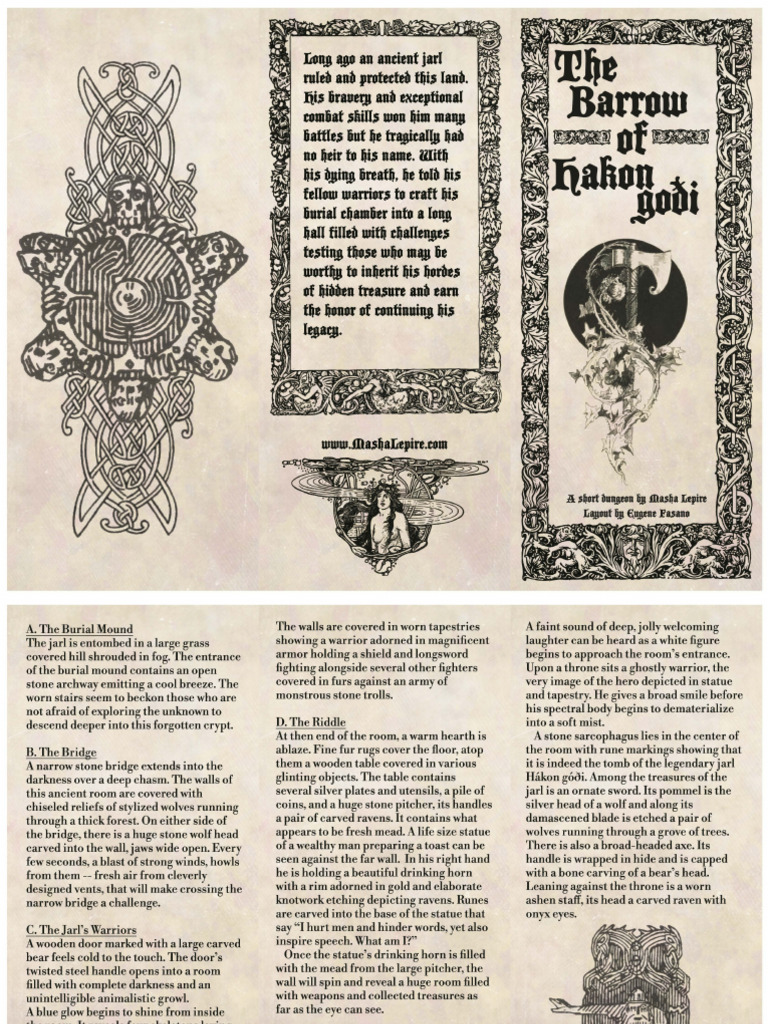 Long ago an ancient jarl
ruled and protected this land.
His bravery and exceptional
combat skills won him many
battles but he tragically had
no heir to his name. With
his dying breath, he told his
fellow warriors to craft his
burial chamber into a long
hall filled with challenges
testing those who may be
worthy to inherit his hordes
of hidden treasure and earn
the honor of continuing his
legacy.
www.MashaLepire.com
The
Barrow
of
Hakon
goði
A short dungeon by Masha Lepire
Layout by Eugene Fasano
A. The Burial Mound
The jarl is entombed in a large grass
covered hill shrouded in fog. The entrance
of the burial mound contains an open
stone archway emitting a cool breeze. The
worn stairs seem to beckon those who are
not afraid of exploring the unknown to
descend deeper into this forgotten crypt.
B. The Bridge
A narrow stone bridge extends into the
darkness over a deep chasm. The walls of
this ancient room are covered with
chiseled reliefs of stylized wolves running
through a thick forest. On either side of
the bridge, there is a huge stone wolf head
carved into the wall, jaws wide open. Every
few seconds, a blast of strong winds, howls
from them -- fresh air from cleverly
designed vents, that will make crossing the
narrow bridge a challenge.
C. The Jarl's Warriors
A wooden door marked with a large carved
bear feels cold to the touch. The door's
twisted steel handle opens into a room
filled with complete darkness and an
unintelligible animalistic growl.
A blue glow begins to shine from inside
The walls are covered in worn tapestries
showing a warrior adorned in magnificent
armor holding a shield and longsword
fighting alongside several other fighters
covered in furs against an army of
monstrous stone trolls.
D. The Riddle
At then end of the room, a warm hearth is
ablaze. Fine fur rugs cover the floor, atop
them a wooden table covered in various
glinting objects. The table contains
several silver plates and utensils, a pile of
coins, and a huge stone pitcher, its handles
a pair of carved ravens. It contains what
appears to be fresh mead. A life size statue
of a wealthy man preparing a toast can be
seen against the far wall. In his right hand
he is holding a beautiful drinking horn
with a rim adorned in gold and elaborate
knotwork etching depicting ravens. Runes
are carved into the base of the statue that
say "I hurt men and hinder words, yet also
inspire speech. What am I?"
Once the statue's drinking horn is filled
with the mead from the large pitcher, the
wall will spin and reveal a huge room filled
with weapons and collected treasures as
far as the eye can see.
A faint sound of deep, jolly welcoming
laughter can be heard as a white figure
begins to approach the room's entrance.
Upon a throne sits a ghostly warrior, the
very image of the hero depicted in statue
and tapestry. He gives a broad smile before
his spectral body begins to dematerialize
into a soft mist.
A stone sarcophagus lies in the center of
the room with rune markings showing that
it is indeed the tomb of the legendary jarl
Hákon góði. Among the treasures of the
jarl is an ornate sword. Its pommel is the
silver head of a wolf and along its
damascened blade is etched a pair of
wolves running through a grove of trees.
There is also a broad-headed axe. Its
handle is wrapped in hide and is capped
with a bone carving of a bear's head.
Leaning against the throne is a worn
ashen staff, its head a carved raven with
onyx eyes.